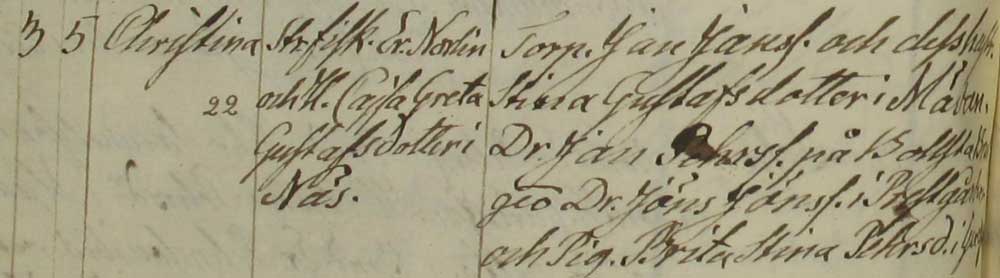 3 5 Christina Str.fisk. Er. Norlin Torp. Jan Janss. och dess hustr.
22 och H. Cajsa Greta Stina Gustafsdotter i
Gustafsdotter i Dr. Jan Pehrss. på
Näs. Dr. Jöns Jönss. i
och Pig. Brita Stina Pehrsd. i